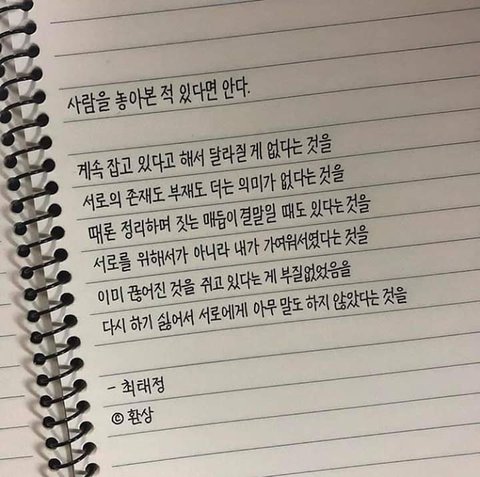 사람을 놓아본 적 있다면 안다.
계속 잡고 있다고 해서 달라질 게 없다는 것을
서로의 존재도 부재도 더는 의미가 없다는 것을
때론 정리하며 짓는 매듭이 결말일 때도 있다는 것을
서로를 위해서가 아니라 내가 가여워서였다는 것을
이미 끊어진 것을 쥐고 있다는 게 부질없었음을
다시 하기 싫어서 서로에게 아무 말도 하지 않았다는 것을
- 최태정
© 환상